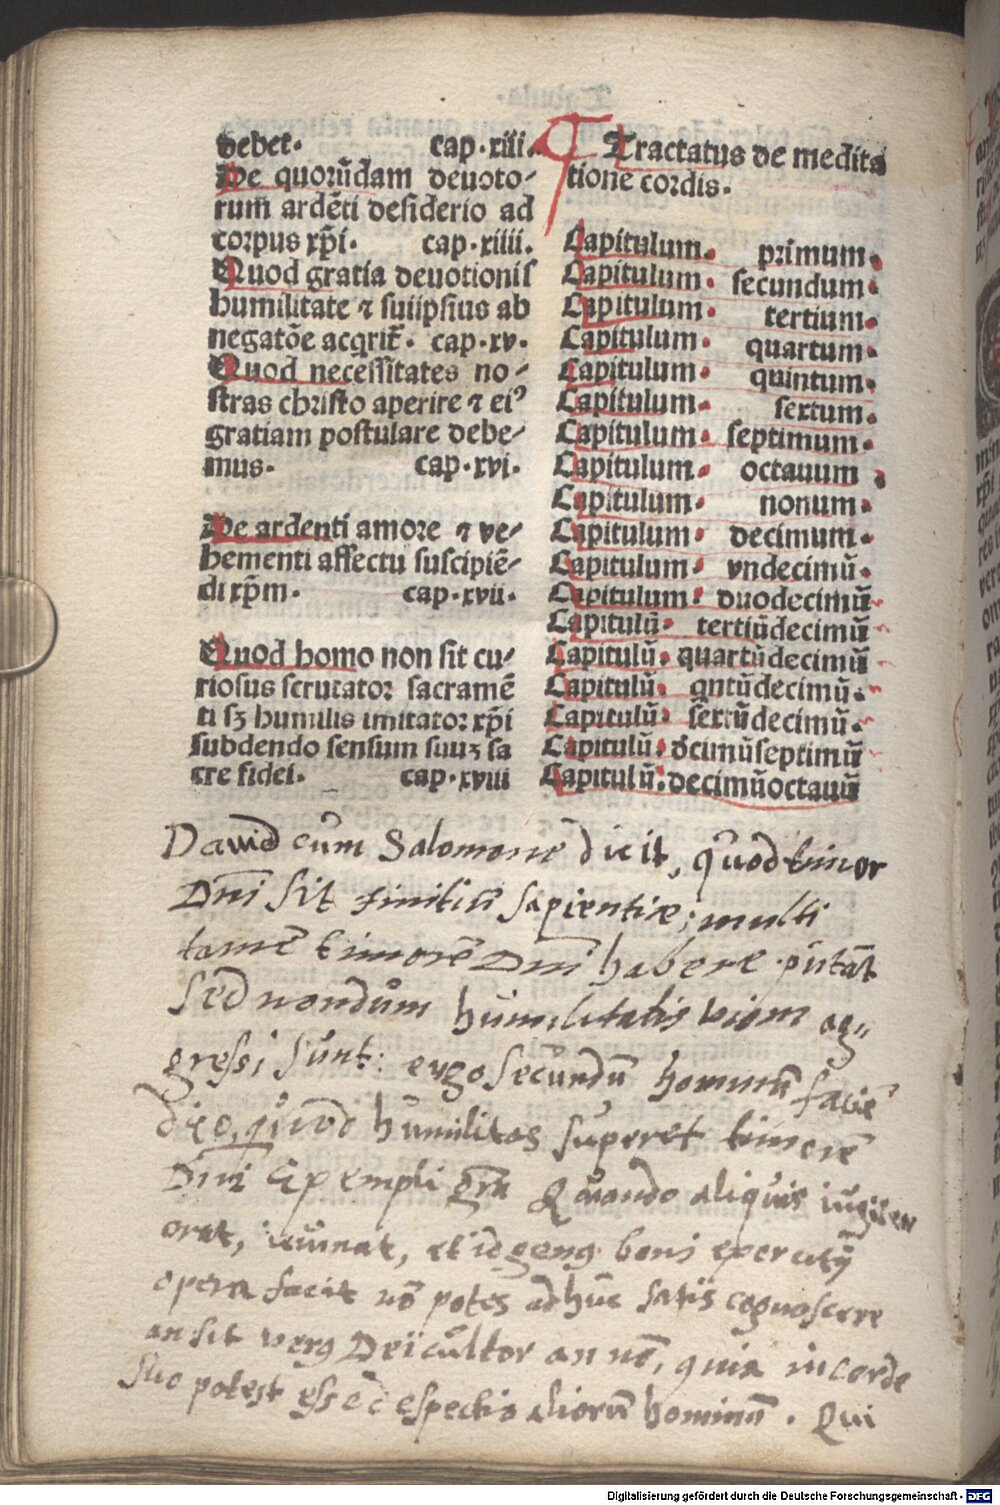 debet. cap.xiii.
De quorũdam deuoto-
rum ardẽti desiderio ad
corpus xp̃i. cap.xiiii.
Quod gratia deuotionis
humilitate ⁊ suiipsius ab
negatõe acqrit̃. cap.xv.
Quod necessitates no-
stras christo aperire ⁊ eiꝰ
gratiam postulare debe-
mus. cap.xvi.
De ardenti amore ⁊ ve-
hementi affectu suscipiẽ-
di xp̃m. cap.xvii.
Quod homo non sit cu-
riosus scrutator sacramẽ
ti sꝫ humilis imitator xp̃i
subdendo sensum suuꝫ sa
cre fidei. cap.xviii
Tractatus de medita
tione cordis.
Capitulum. primum.
Capitulum. secundum.
Capitulum. tertium.
Capitulum. quartum.
Capitulum. quintum.
Capitulum. sextum.
Capitulum. septimum.
Capitulum. octauum.
Capitulum. nonum.
Capitulum. decimum.
Capitulum. vndecimũ.
Capitulum. duodecimũ
Capitulũ. tertiũdecimũ
Capitulũ. quartũdecimũ
Capitulũ. qntũdecimũ.
Capitulũ. sextũdecimũ.
Capitulũ. dcimũseptimũ
Capitulũ. decimũoctauũ
Dawid cum Salomone dicit, quod timor
Dñi sit initiũ sapientiæ; multi
tamẽ timorẽ Dñi habere putãt
sed nondum humilitatis viam ag„
gressi sunt: ergo secundũ hominũ faciẽ
dico, quod humilitas superet timorẽ
Dñi Exempli grã Quando aliquis iugiter
orat, ieiunat, et id genꝰ boni exercitÿ
opera facit nõ potes adhuc satis cognoscere
an sit verꝰ Dei cultor an nõ, quia in corde
suo potest esse despectio aliorũ hominũ. Qui
Digitalisierung gefördert durch die Deutsche Forschungsgemeinschaft - DFG